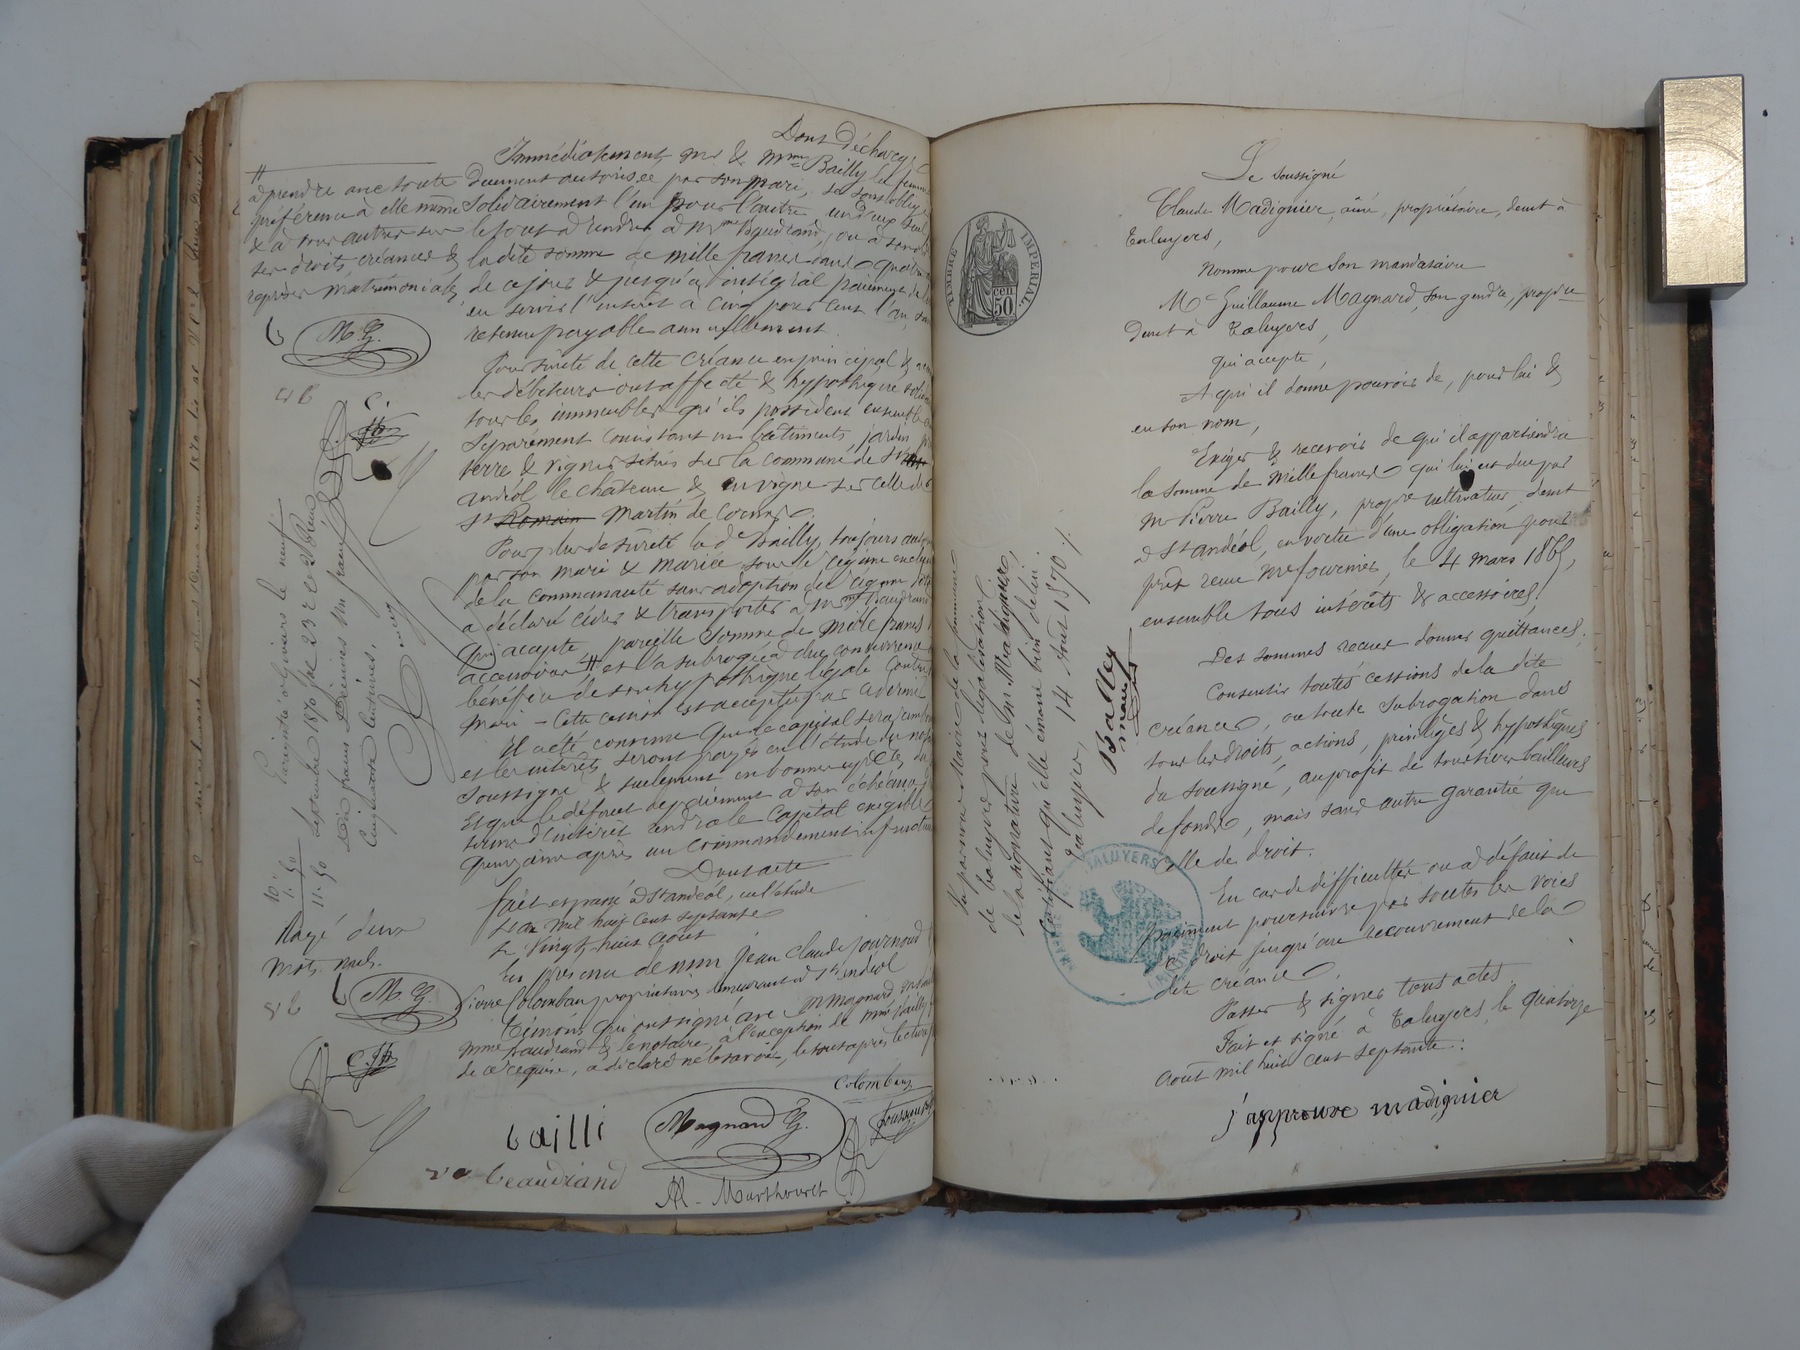 Dont décharge
Immédiatement mr & mme Bailly la femme
dument autorisée par son mari, se sont obligés
solidairement l'un pour l'autre, un deux seul
le tout à rendre à Mme Baudrand, ou à
la dite somme de mille francs dans quatre
de ce jour & jusqu'à intégral paiement de
en servir l'intérêt à cinq pour cent l'an, sans
retenue payable annuellement.
Pour sureté de cette créance en principal &
les débiteurs ont affecté & hypothéqué
tous les immeubles qu'ils possèdent ensemble
séparément consistant en bâtiments, jardin
terre & vignes situés sur la commune de St
andéol le château & en vigne sur celle de
St Romain Martin de Cornas.
Pour plus de sureté la de Bailly, toujours
par son mari & mariée sous le régime exclusif
de la communauté sans adoption du régime
a déclaré céder & transporter à Mme Baudrand
qui accepte, pareille somme de mille francs
accessoires #, et l'a subrogée à due concurrence
bénéfice de son hypothèque légale contre
mari - Cette cession est acceptée par ce dernier
Il a été convenu que le capital sera
et les intérêts seront payés en l'étude du
soussigné & seulement en bonnes espèces
Et que le défaut de paiement à son échéance
terme d'intérêt rendra le capital exigible
quinzaine après un commandement infructueux
Dont acte
fait et passé à St andéol, en l'étude
L'an mil huit cent septante
Le vingt huit août
En présence de mm Jean Claude Journoud
Pierre Colomban propriétaires demeurant à St andéol
Témoins qui ont signé avec M magnard,
mme Baudrand & le notaire, à l'exception de mme Bailly
de ce requise, a déclaré ne le savoir, le tout après lecture
Colomban
bailli
Magnard G.
Journoud
ve beaudrand
Al - Marthouret
#
à prendre avec toute
préférence à elle même
& à tous autres sur
ses droits, créances &
reprises matrimoniales
M G.
Enregistré à Givors le neuf
septembre 1870 fol 23
dix francs décimes un franc
cinquante centimes.
10.
1.50
11.50
Rayé deux
mots nuls.
M. G.
TIMBRE IMPERIAL
50 cen
Vu par nous Maire de la commune
de taluyers pour légalisation
de la signature de Mr Madignier,
Certifiant qu'elle émane bien de lui.
Taluyers, 14 Août 1870
Balley
maire
MAIRIE DE TALUYERS (RHÔNE)
Le soussigné
Claude Madignier, aîné, propriétaire, demt à
Taluyers,
Nomme pour son mandataire
Mr Guillaume Magnard, son gendre, propre
demt à Taluyers,
qui accepte,
A qui il donne pouvoir de, pour lui &
en son nom,
Exiger & recevoir de qui il appartiendra
la somme de mille francs qui lui est due par
Mr Pierre Bailly, propre cultivateur, demt
à St andéol, en vertu d'une obligation pour
prêt reçue Me fournier, le 4 mars 1865,
ensemble tous intérêts & accessoires,
Des sommes reçues donner quittances,
Consentir toutes cessions de la dite
créance, ou toute subrogation dans
tous les droits, actions, privilèges & hypothèques
du soussigné, au profit de tous tiers bailleurs
de fonds, mais sans autre garantie que
celle de droit.
En cas de difficultés ou à défaut de
paiement poursuivre par toutes les voies
de droit jusqu'au recouvrement de la
dite créance.
Passer & signer tous actes.
Fait et signé à Taluyers, le quatorze
Août mil huit cent septante.
j'approuve madignier